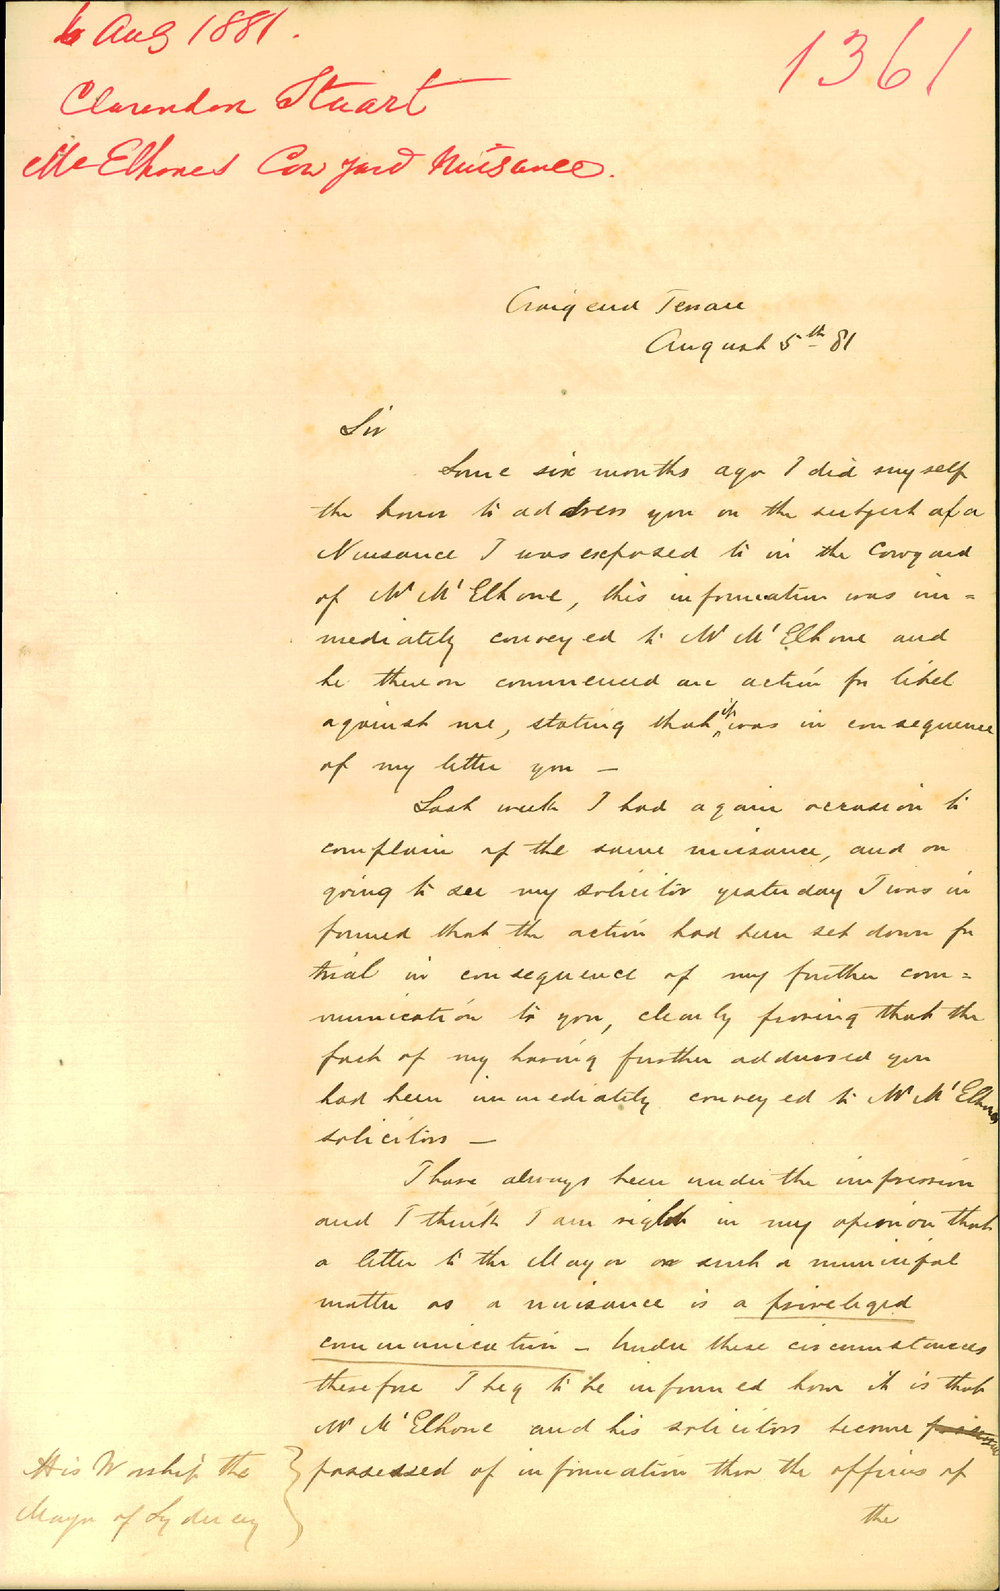 6 Aug 1881.
1361
Clarendon Stuart
McElhones Cow yard Nuisance.
Craigend Terrace
August 5th 81
Sir
Some six months ago I did myself
the honor to address you on the subject of a
Nuisance I was exposed to in the Cowyard
of Mr McElhone, this information was im=
mediately conveyed to Mr McElhone and
he thereon commenced an action for libel
against me, stating that it was in consequence
of my letter you —
Last week I had again occasion to
complain of the same nuisance, and on
going to see my solicitor yesterday I was in
formed that the action had been set down for
trial in consequence of my further com=
munication to you, clearly proving that the
fact of my having further addressed you
had been immediately conveyed to Mr McElhones
solicitors —
I have always been under the impression
and I think I am right in my opinion that
a letter to the Mayor on such a municipal
matter as a nuisance is a priveleged
communication – Under these circumstances
therefore I beg to be informed how it is that
Mr McElhone and his solicitors become
possessed of information thro the officers of
the
His Worship the
Mayor of Sydney